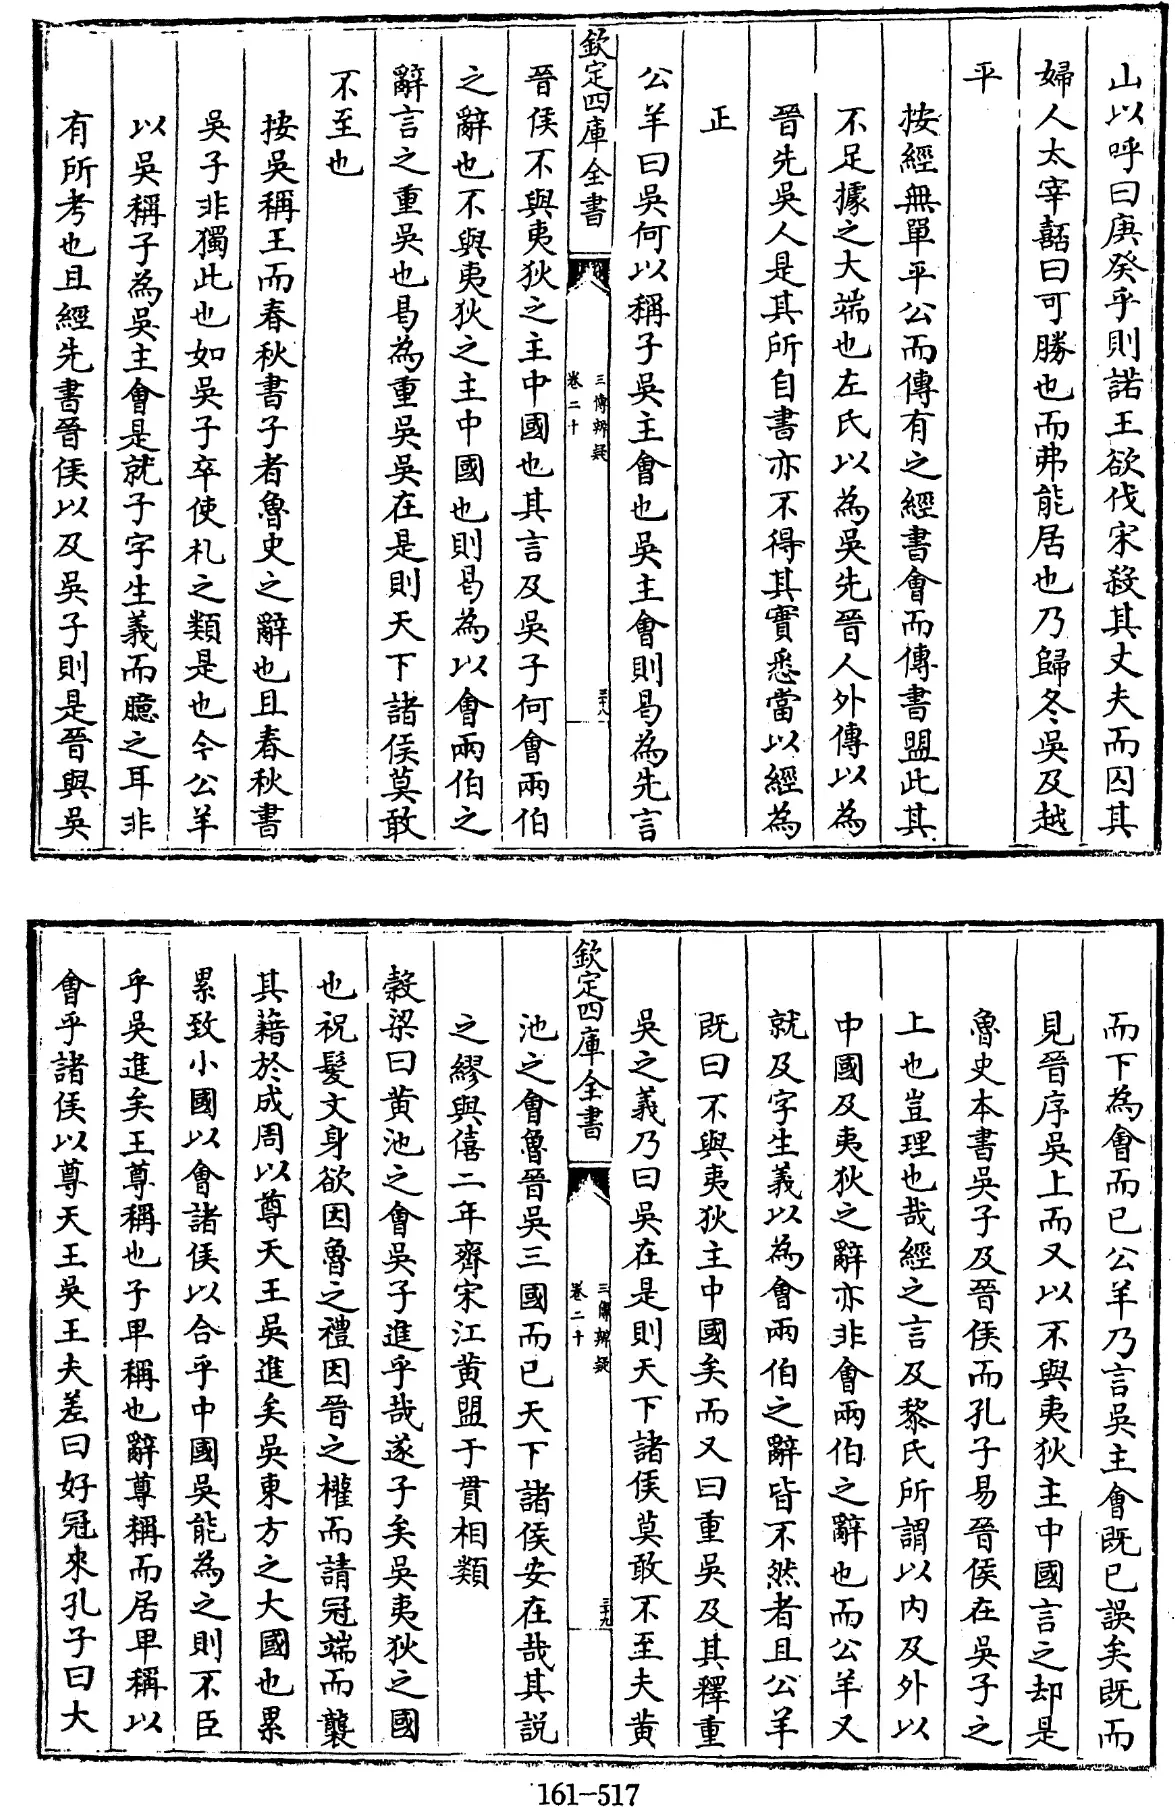 山以呼曰庚癸乎則諾王欲伐宋殺其丈夫而囚其
婦人太宰嚭曰可勝也而弗能居也乃歸冬吳及越
平
按經無單平公而傳有之經書會而傳書盟此其
不足據之大端也左氏以為吳先晉人外傳以為
晉先吳人是其所自書亦不得其實悉當以經為
正
公羊曰吳何以稱子吳主會也吳主會則曷為先言
欽定四庫全書
三傳辨疑
卷二十
三十八
晉侯不與夷狄之主中國也其言及吳子何會兩伯
之辭也不與夷狄之主中國也則曷為以會兩伯之
辭言之重吳也曷為重吳吳在是則天下諸侯莫敢
不至也
按吳稱王而春秋書子者魯史之辭也且春秋書
吳子非獨此也如吳子卒使札之類是也今公羊
以吳稱子為吳主會是就子字生義而臆之耳非
有所考也且經先書晉侯以及吳子則是晉與吳
而下為會而已公羊乃言吳主會既已誤矣既而
見晉序吳上而又以不與夷狄主中國言之却是
魯史本書吳子及晉侯而孔子易晉侯在吳子之
上也豈理也哉經之言及黎氏所謂以内及外以
中國及夷狄之辭亦非會兩伯之辭也而公羊又
就及字生義以為會兩伯之辭皆不然者且公羊
既曰不與夷狄主中國矣而又曰重吳及其釋重
吳之義乃曰吳在是則天下諸侯莫敢不至夫黄
欽定四庫全書
三傳辨疑
卷二十
三十九
池之會魯晉吳三國而已天下諸侯安在哉其説
之繆與僖二年齊宋江黄盟于貫相類
穀梁曰黄池之會吳子進乎哉遂子矣吳夷狄之國
也祝髮文身欲因魯之禮因晉之權而請冠端而襲
其藉於成周以尊天王吳進矣吳東方之大國也累
累致小國以會諸侯以合乎中國吳能為之則不臣
乎吳進矣王尊稱也子卑稱也辭尊稱而居卑稱以
會乎諸侯以尊天王吳王夫差曰好冠來孔子曰大
161-517